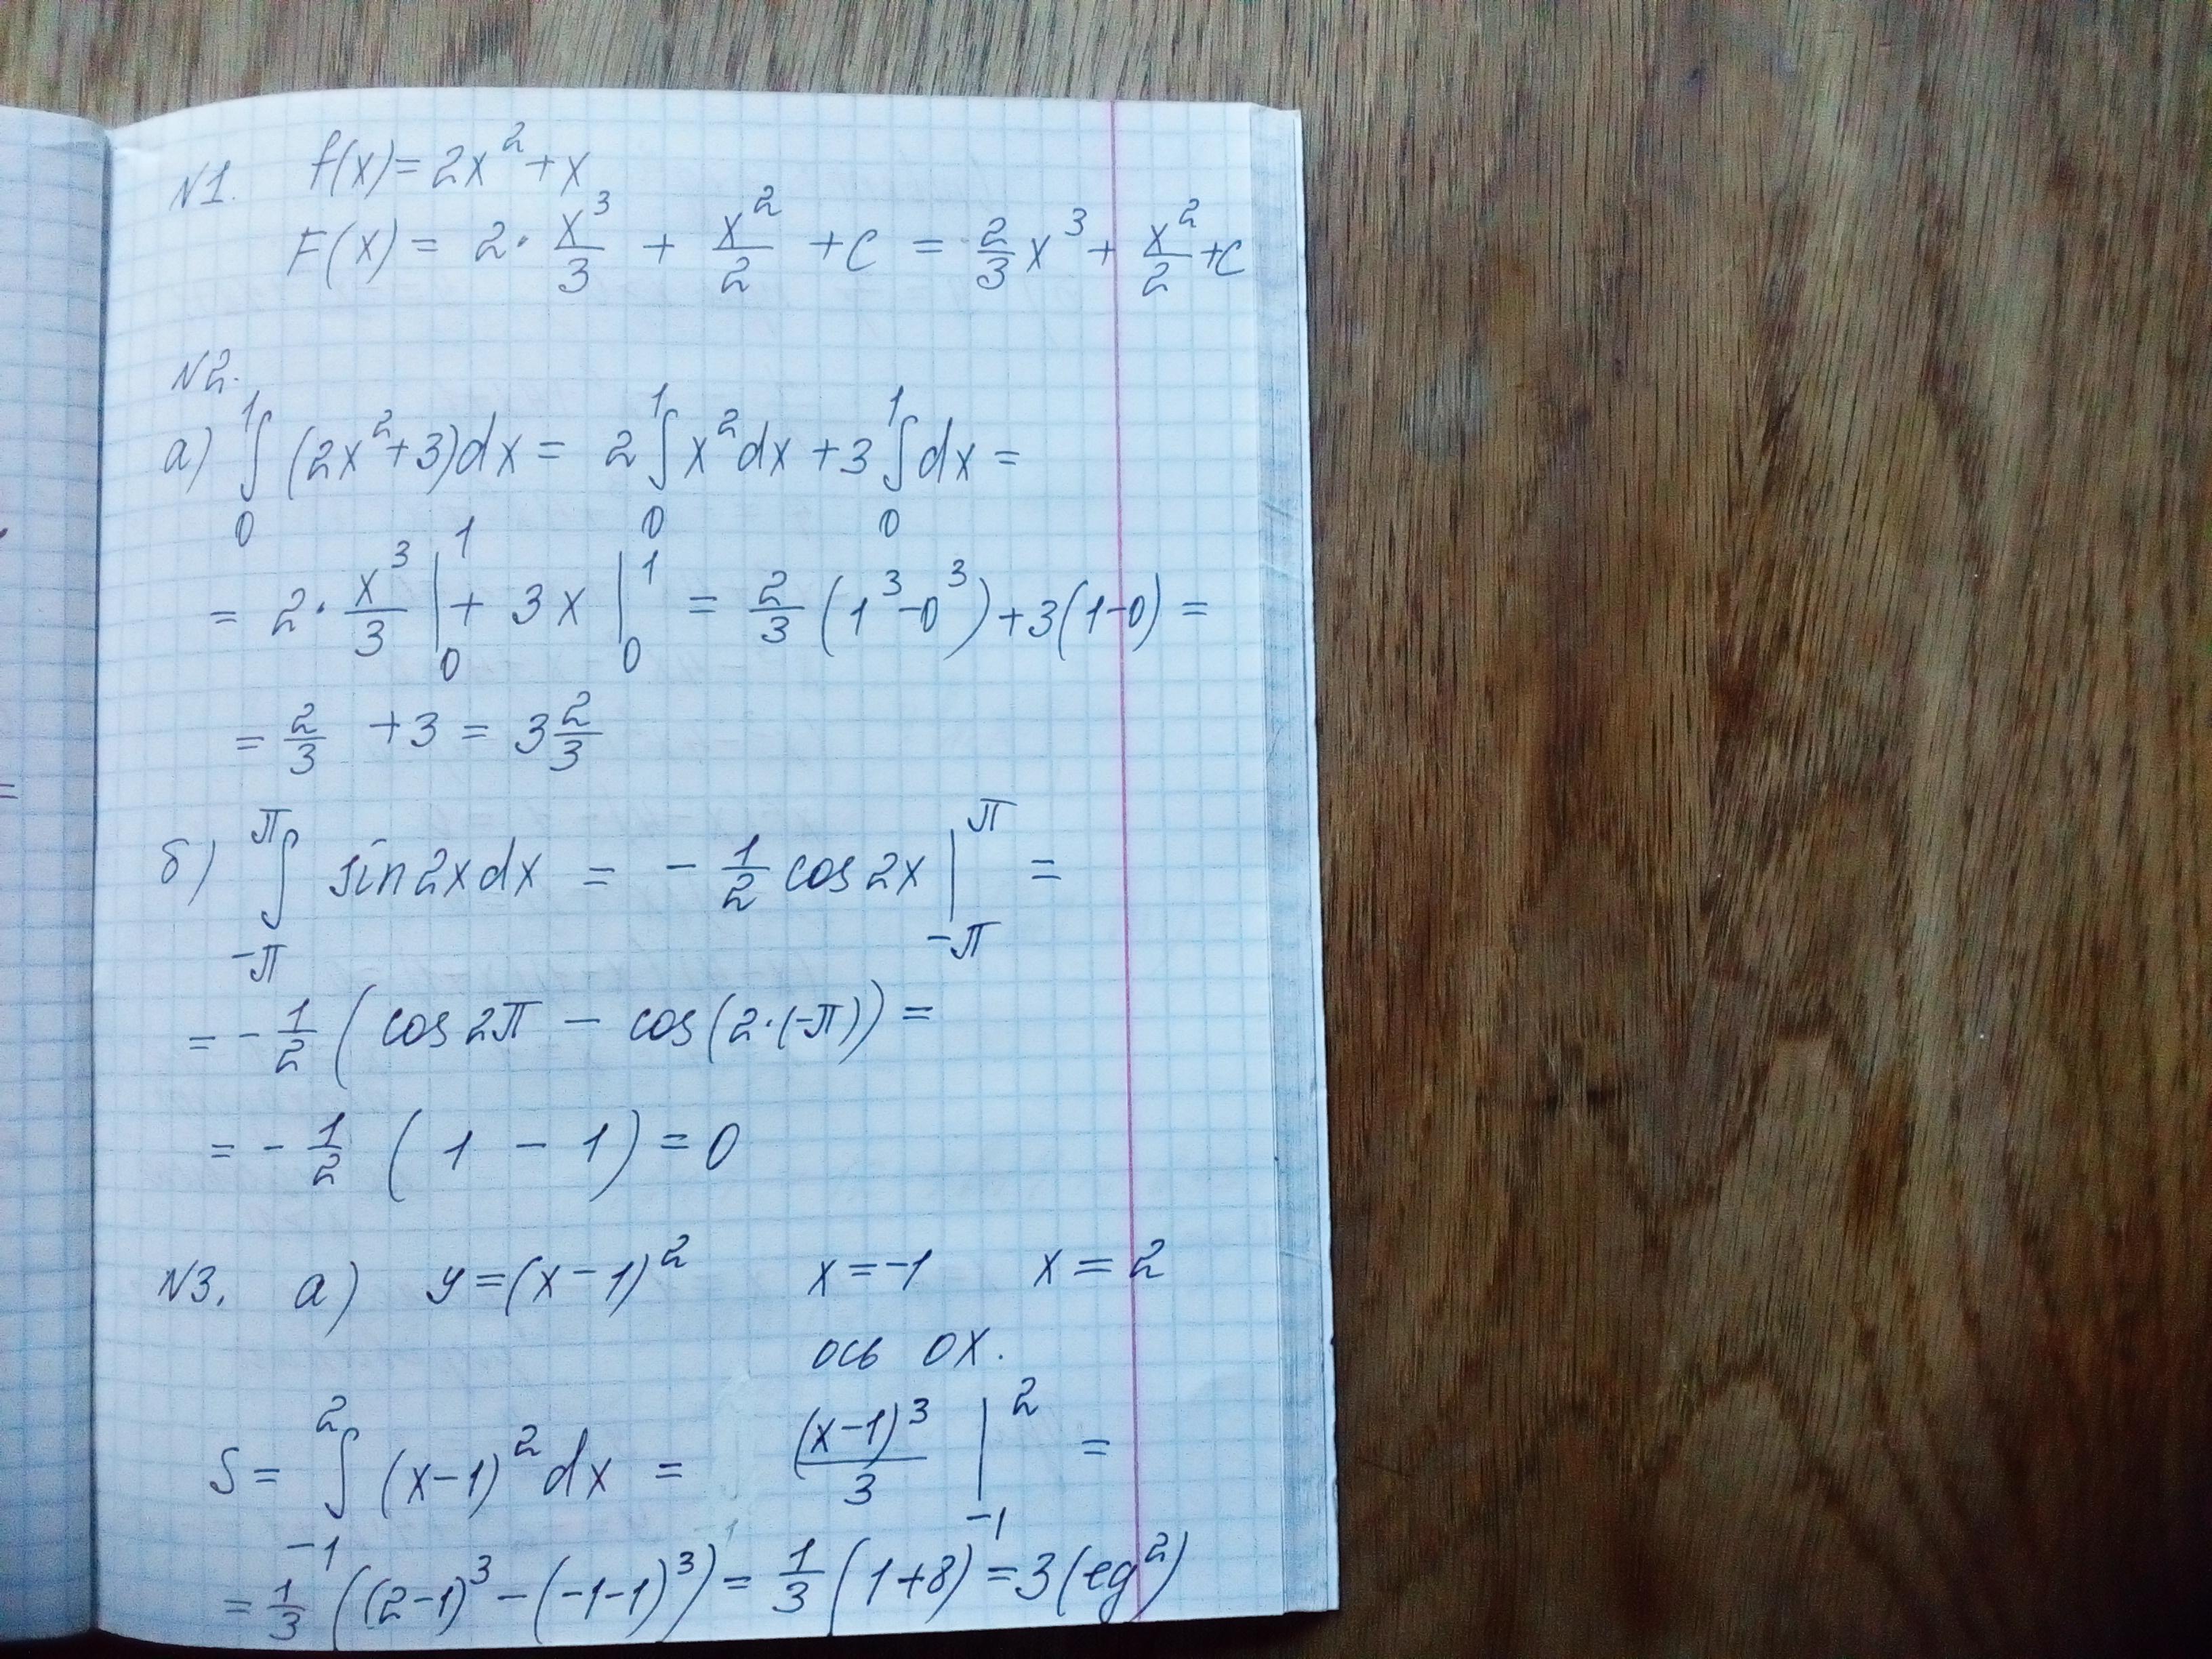 N1. f(x) = 2x² + x
F(x) = 2 · x³/3 + x²/2 + C = 2/3 x³ + x²/2 + C
N2.
а) ∫₀¹ (2x² + 3)dx = 2 ∫₀¹ x² dx + 3 ∫₀¹ dx =
= 2 · x³/3 |₀¹ + 3x |₀¹ = 2/3 (1³ - 0³) + 3(1 - 0) =
= 2/3 + 3 = 3 2/3
б) ∫_{-π}^{π} sin 2x dx = - 1/2 cos 2x |_{-π}^{π} =
= - 1/2 ( cos 2π - cos(2·(-π)) =
= - 1/2 ( 1 - 1 ) = 0
N3. а) y = (x - 1)² x = -1 x = 2
ось OX.
S = ∫_{-1}^{2} (x - 1)² dx = (x - 1)³/3 |_{-1}^{2} =
= 1/3 ((2 - 1)³ - (-1 - 1)³) = 1/3 (1 + 8) = 3 (eg²)